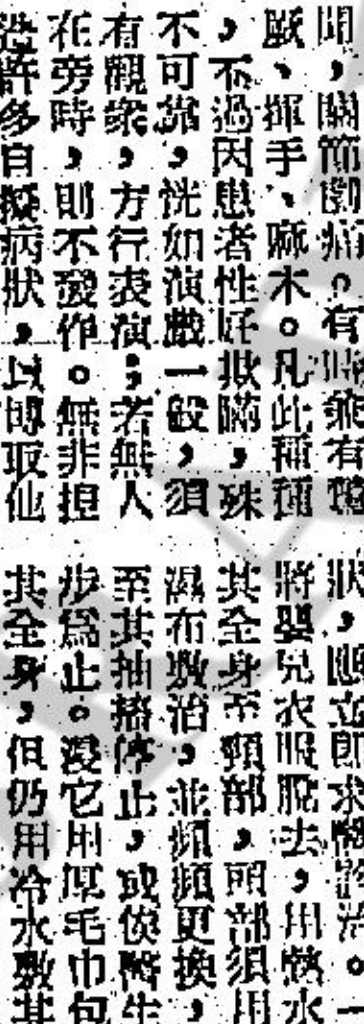 間，關節劇痛。有時兼有
厥、揮手、麻木。凡此種種
，不過因患者性好欺瞞，殊
不可靠，恍如演戲一般，須
有觀衆，方行表演；若無人
在旁時，則不發作。無非捏
造許多自擬病狀，以博取他
狀，應立即求醫診治。一
將嬰兒衣服脫去，用熱水
其全身至頸部，頭部須用
濕布敷治，並頻頻更換，
至其抽搐停止，或俟醫生
步爲止。浸它用厚毛巾包
其全身，但仍用冷水敷其